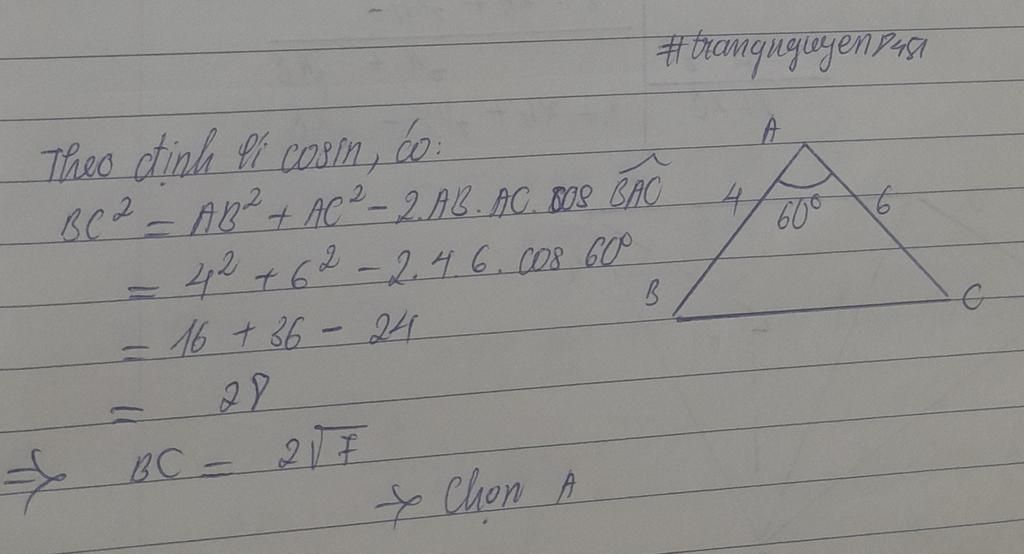 #trangnguyen8451
Theo định lí cosin, có:
BC² = AB² + AC² - 2.AB.AC.cos BAC
= 4² + 6² - 2.4 6.cos 60°
= 16 + 36 - 24
= 28
=> BC = 2√7
-> Chọn A
A
4
60°
6
B
C